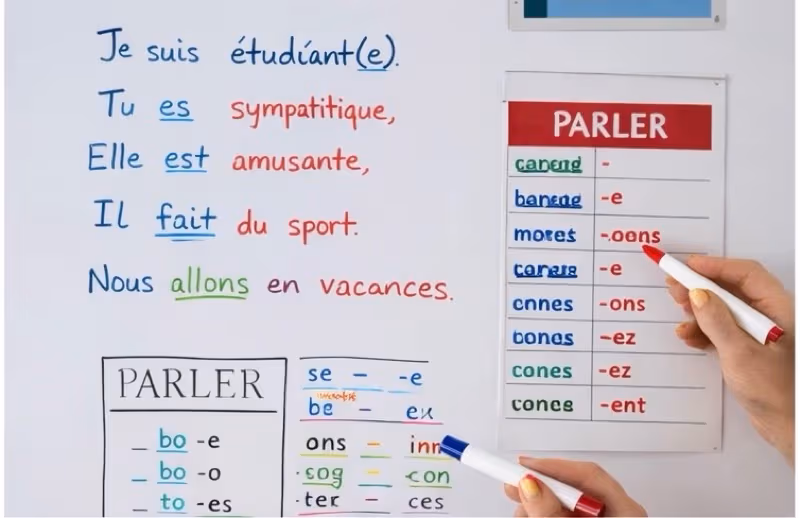 Je suis étudiant(e).
Tu es sympatitique,
Elle est amusante,
Il fait du sport.
Nous allons en vacances.
PARLER
_ bo -e
_ bo -o
_ to -es
se – -e
be – eu
ons – inn
·sog – con
·ter – ces
PARLER
-
-e
mores -.oons
-e
cnnes -ons
bonos -ez
cones -ez
concs -ent